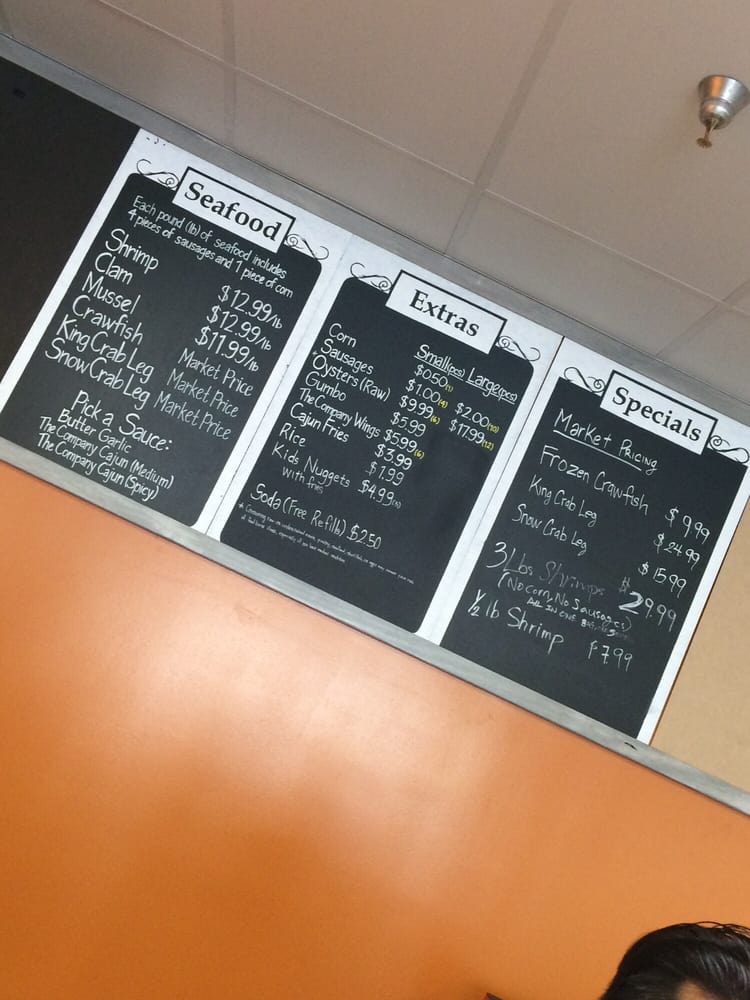 Seafood
Each pound (lb) of seafood includes
4 pieces of sausages and 1 piece of corn
Shrimp $12.99/lb
Clam $12.99/lb
Mussel $11.99/lb
Crawfish Market Price
King Crab Leg Market Price
Snow Crab Leg Market Price
Pick a Sauce:
Butter Garlic
The Company Cajun (Medium)
The Company Cajun (Spicy)
Extras
Small(pcs) Large(pcs)
Corn $0.50(1)
Sausages $1.00(4) $2.00(10)
*Oysters (Raw) $9.99(6) $17.99(12)
Gumbo $5.99
The Company Wings $5.99(6)
Cajun Fries $3.99
Rice $1.99
Kids Nuggets $4.99
with fries
Soda (Free Refills) $2.50
Specials
Market Pricing
Frozen Crawfish $9.99
King Crab Leg $24.99
Snow Crab Leg $15.99
3 Lbs Shrimps $29.99
(No corn, No Sausages)
ALL IN ONE BAG
½ lb Shrimp $7.99